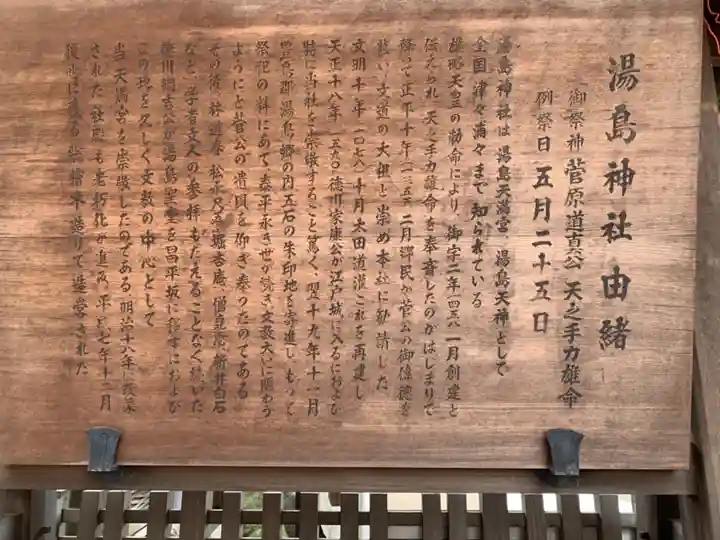 湯島神社由緒
御祭神 菅原道真公 天之手力雄命
例祭日 五月二十五日
湯島神社は 湯島天満宮、湯島天神として
全国 津々浦々まで 知られている
雄略天皇の勅命により、御宇二年(四五八)一月創建と
伝えられ 天之手力雄命を奉斎したのがはじまりで
降って正平十年(一三五五)二月郷民が菅公の御偉徳を
慕い 文道の大祖と 崇め本社に勧請した
文明十年(一四七八)十月 太田道灌これを再建し
天正十八年(一五九〇)徳川家康公が江戸城に入るにおよび
特に当社を崇敬すること篤く、翌十九年十一月
豊島郡湯島郷の内五石の朱印地を寄進し もって
祭祀の料にあて、泰平永き世が続き 文教大いに賑わう
ようにと菅公の遺風を仰ぎ奉ったのである
その後、林道春 松永尺五 堀杏庵、僧堯恵 新井白石
など、学者文人の参拝もたえることなく続いた
徳川綱吉公が湯島聖堂を昌平坂に移すにおよび
この地を久しく文教の中心として
当天満宮を崇敬したのである 明治十八年に改築
された社殿も老朽化が進み 平成七年十二月
後世に残る 総檜木造りで造営された